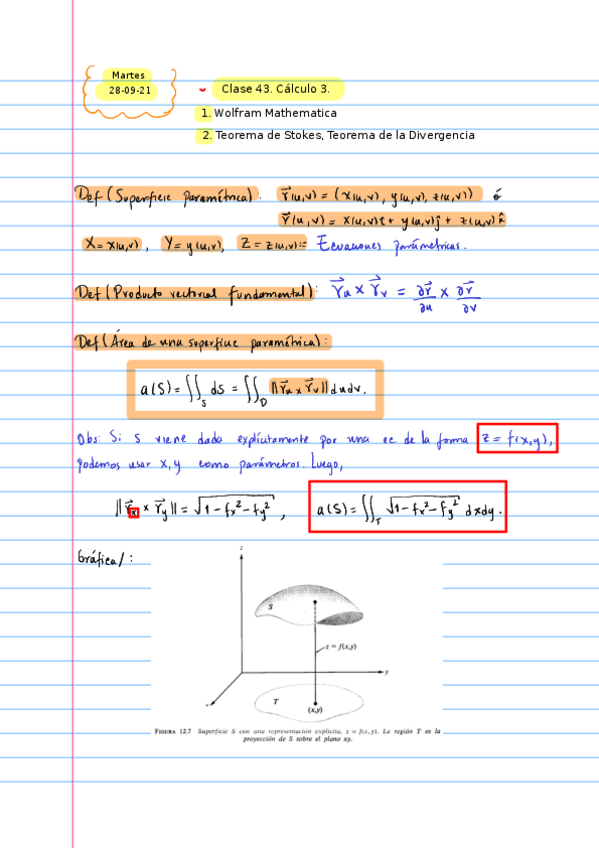 Martes
28-09-21
Clase 43. Cálculo 3.
1. Wolfram Mathematica
2. Teorema de Stokes, Teorema de la Divergencia
Def (Superficie paramétrica): r⃗(u,v) = (x(u,v), y(u,v), z(u,v)) ó
r⃗(u,v) = x(u,v)î + y(u,v)ĵ + z(u,v)k̂
X = x(u,v), Y = y(u,v), Z = z(u,v) :: Ecuaciones paramétricas.
Def (Producto vectorial fundamental): r⃗u × r⃗v = ∂r⃗/∂u × ∂r⃗/∂v
Def (Área de una superficie paramétrica):
a(S) = ∬_S dS = ∬_D ||r⃗u × r⃗v|| dudv.
Obs: Si S viene dada explícitamente por una ec de la forma z = f(x,y),
podemos usar x, y como parámetros. Luego,
||r⃗x × r⃗y|| = √(1 - fx² - fy²), a(S) = ∬_T √(1 - fx² - fy²) dxdy.
Gráfica/:
z
S
z = f(x,y)
y
T
(x,y)
x
FIGURA 12.7 Superficie S con una representación explícita, z = f(x, y). La región T es la
proyección de S sobre el plano xy.